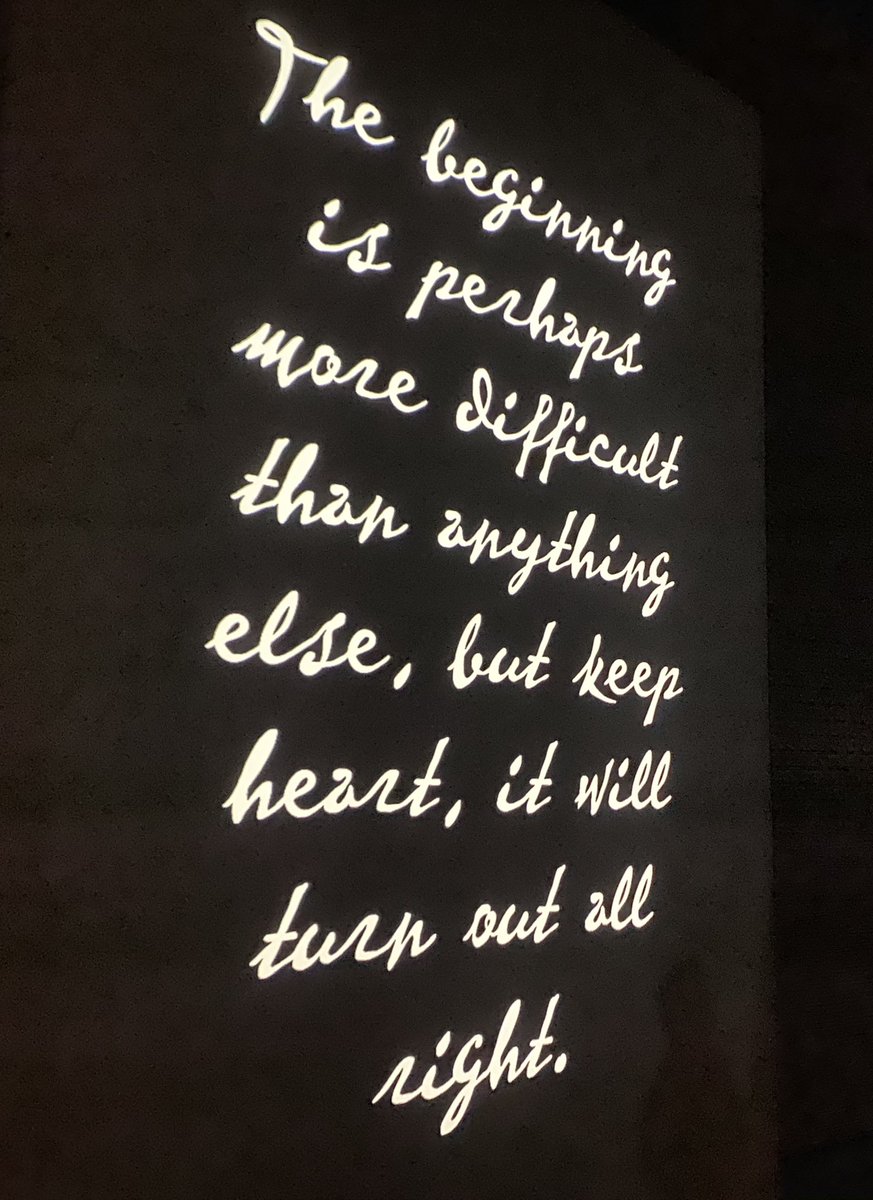 The beginning
is perhaps
more difficult
than anything
else, but keep
heart, it will
turn out all
right.